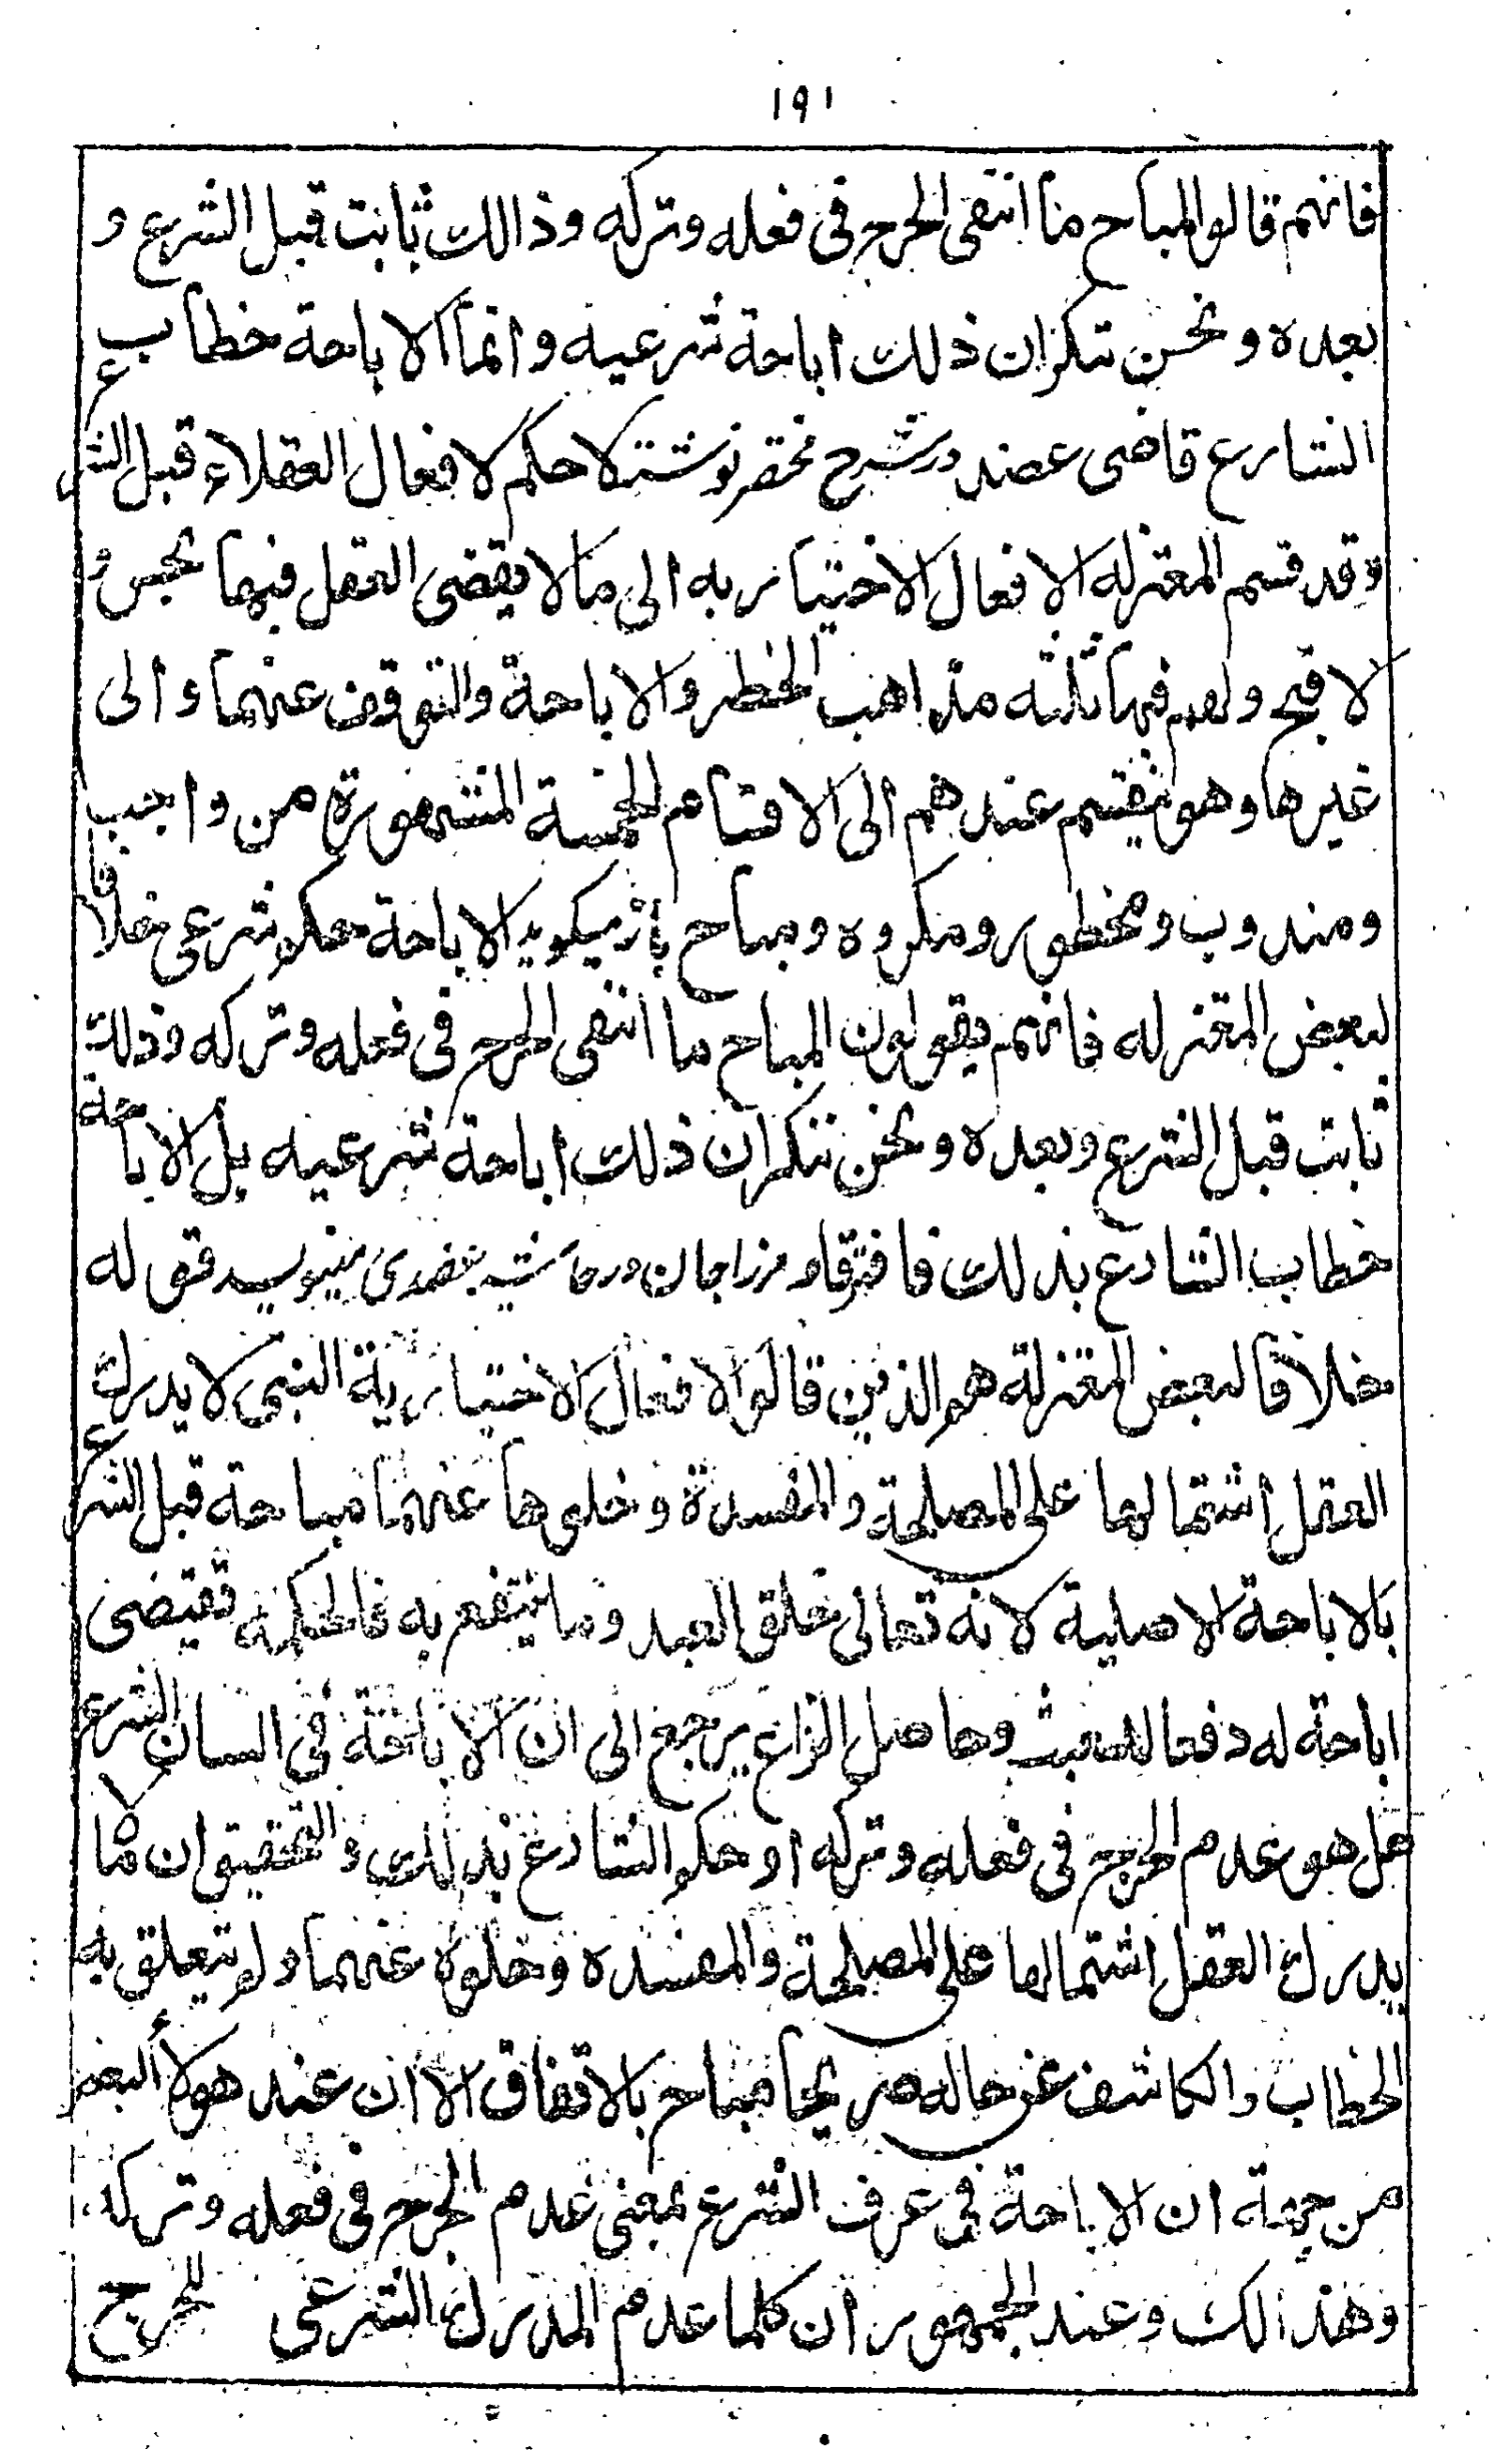 ١٩١
فانهم قالوا المباح ما انتفى الحرج فى فعله وتركه وذالك ثابت قبل الشرع و
بعده ونحن ننكران ذلك اباحة شرعيه وانما الاباحة خطاب
الشارع قاضى عضد درشرح مختصر نوشته لا حكم لافعال العقلاء قبل الشرع
وقد قسم المعتزله الافعال الاختياريه الى مالا يقضى العقل فيها بحسن و
لا قبح ولهم فيها ثلثه مذاهب الحظر والاباحة والتوقف عنهما والى
غيرها وهو ينقسم عندهم الى الاقسام الخمسة المشهورة من واجب
ومندوب ومحظور ومكروه ومباح باز ميكويد الاباحة حكم شرعى خلافا
لبعض المعتزله فانهم يقولون المباح ما انتفى الحرج فى فعله وتركه وذلك
ثابت قبل الشرع وبعده ونحن ننكران ذلك اباحة شرعيه بل الاباحة
خطاب الشارع بذلك فافترقا و مرزاجان درحاشيه عضدى مينويسد قوله
خلافا لبعض المعتزلة هم الذين قالوا الافعال الاختيارية التى لا يدرك
العقل اشتمالها على المصلحة والمفسدة وخلوها عنهما مباحة قبل الشرع
بالاباحة الاصلية لانه تعالى خلق العبد وما ينتفع به فالحكمة تقتضى
اباحة له دفعا للعبث وحاصل النزاع يرجع الى ان الاباحة فى السان الشرع
هل هو عدم الحرج فى فعله وتركه او حكم الشارع بذلك والتحقيق ان ما لا
يدرك العقل اشتمالها على المصلحة والمفسده وخلوه عنهما ولم يتعلق به
الخطاب والكاشف عن حاله صريحا مباح بالاتفاق الا ان عند هولاء البعض
من جهة ان الاباحة فى عرف الشرع بمعنى عدم الحرج فى فعله وتركه
وهذالك وعند الجمهور ان كلما عدم المدرك الشرعى للحرج